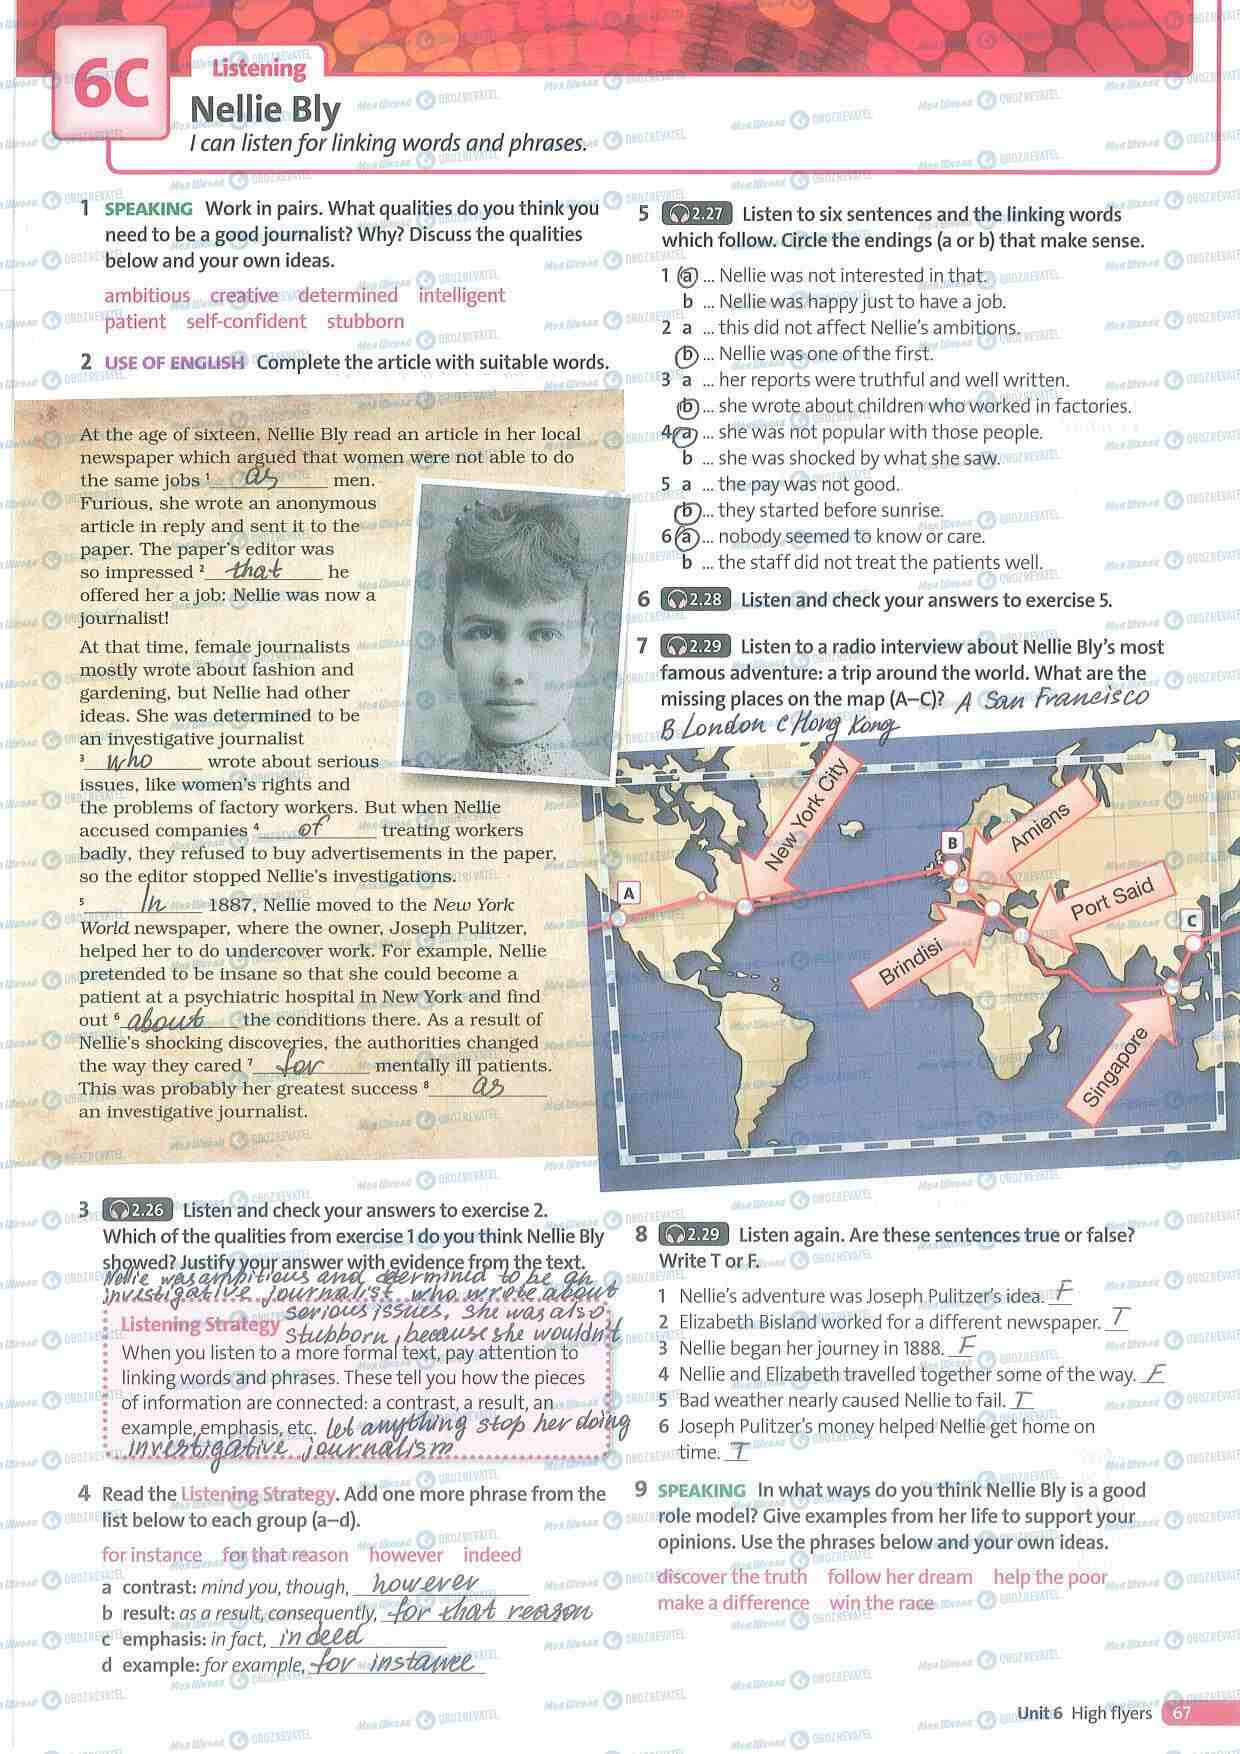 6C
Listening
Nellie Bly
I can listen for linking words and phrases.
1 SPEAKING Work in pairs. What qualities do you think you
need to be a good journalist? Why? Discuss the qualities
below and your own ideas.
ambitious creative determined intelligent
patient self-confident stubborn
2 USE OF ENGLISH Complete the article with suitable words.
At the age of sixteen, Nellie Bly read an article in her local
newspaper which argued that women were not able to do
the same jobs 1 as men.
Furious, she wrote an anonymous
article in reply and sent it to the
paper. The paper's editor was
so impressed 2 that he
offered her a job: Nellie was now a
journalist!
At that time, female journalists
mostly wrote about fashion and
gardening, but Nellie had other
ideas. She was determined to be
an investigative journalist
3 who wrote about serious
issues, like women's rights and
the problems of factory workers. But when Nellie
accused companies 4 of treating workers
badly, they refused to buy advertisements in the paper,
so the editor stopped Nellie's investigations.
5 In 1887, Nellie moved to the New York
World newspaper, where the owner, Joseph Pulitzer,
helped her to do undercover work. For example, Nellie
pretended to be insane so that she could become a
patient at a psychiatric hospital in New York and find
out 6 about the conditions there. As a result of
Nellie's shocking discoveries, the authorities changed
the way they cared 7 for mentally ill patients.
This was probably her greatest success 8 as
an investigative journalist.
3 2.26 Listen and check your answers to exercise 2.
Which of the qualities from exercise 1 do you think Nellie Bly
showed? Justify your answer with evidence from the text.
Nellie was ambitious and determined to be an
investigative journalist who wrote about
serious issues. She was also
Listening Strategy stubborn, because she wouldn't
When you listen to a more formal text, pay attention to
linking words and phrases. These tell you how the pieces
of information are connected: a contrast, a result, an
example, emphasis, etc. let anything stop her doing
investigative journalism
4 Read the Listening Strategy. Add one more phrase from the
list below to each group (a–d).
for instance for that reason however indeed
a contrast: mind you, though, however
b result: as a result, consequently, for that reason
c emphasis: in fact, indeed
d example: for example, for instance
5 2.27 Listen to six sentences and the linking words
which follow. Circle the endings (a or b) that make sense.
1 a ... Nellie was not interested in that.
b ... Nellie was happy just to have a job.
2 a ... this did not affect Nellie's ambitions.
b ... Nellie was one of the first.
3 a ... her reports were truthful and well written.
b ... she wrote about children who worked in factories.
4 a ... she was not popular with those people.
b ... she was shocked by what she saw.
5 a ... the pay was not good.
b ... they started before sunrise.
6 a ... nobody seemed to know or care.
b ... the staff did not treat the patients well.
6 2.28 Listen and check your answers to exercise 5.
7 2.29 Listen to a radio interview about Nellie Bly's most
famous adventure: a trip around the world. What are the
missing places on the map (A–C)? A San Francisco
B London C Hong Kong
New York City
Amiens
B
A
Port Said
C
Brindisi
Singapore
8 2.29 Listen again. Are these sentences true or false?
Write T or F.
1 Nellie's adventure was Joseph Pulitzer's idea. F
2 Elizabeth Bisland worked for a different newspaper. T
3 Nellie began her journey in 1888. F
4 Nellie and Elizabeth travelled together some of the way. F
5 Bad weather nearly caused Nellie to fail. T
6 Joseph Pulitzer's money helped Nellie get home on
time. T
9 SPEAKING In what ways do you think Nellie Bly is a good
role model? Give examples from her life to support your
opinions. Use the phrases below and your own ideas.
discover the truth follow her dream help the poor
make a difference win the race
Unit 6 High flyers 67
Моя Школа OBOZREVATEL